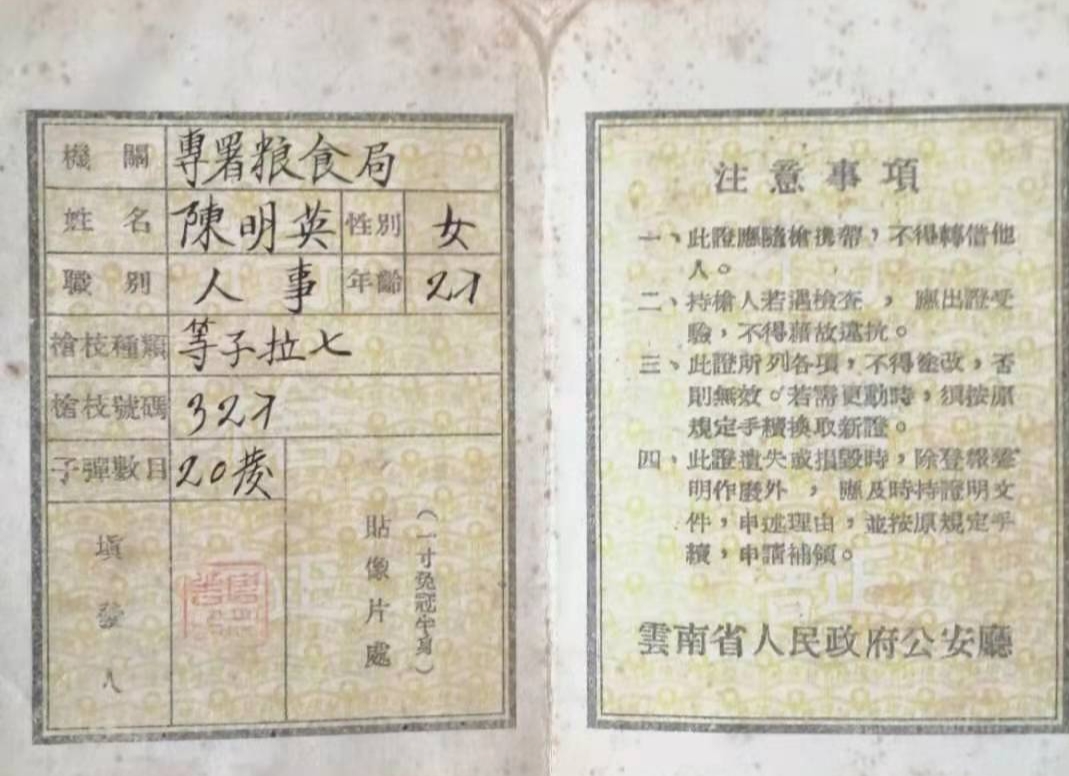 機關 專署粮食局
姓名 陳明英 性別 女
職別 人事 年齡 27
槍枝種類 等子拉七
槍枝號碼 327
子彈數目 20發
填發人
貼像片處
(一寸免冠半身)
注意事項
一、此證應隨槍携帶，不得轉借他
人。
二、持槍人若遇檢查，應出證受
驗，不得藉故違抗。
三、此證所列各項，不得塗改，否
則無效。若需更動時，須按原
規定手續換取新證。
四、此證遺失或損毀時，除登報聲
明作廢外，應及時持證明文
件，申述理由，並按原規定手
續，申請補領。
雲南省人民政府公安廳